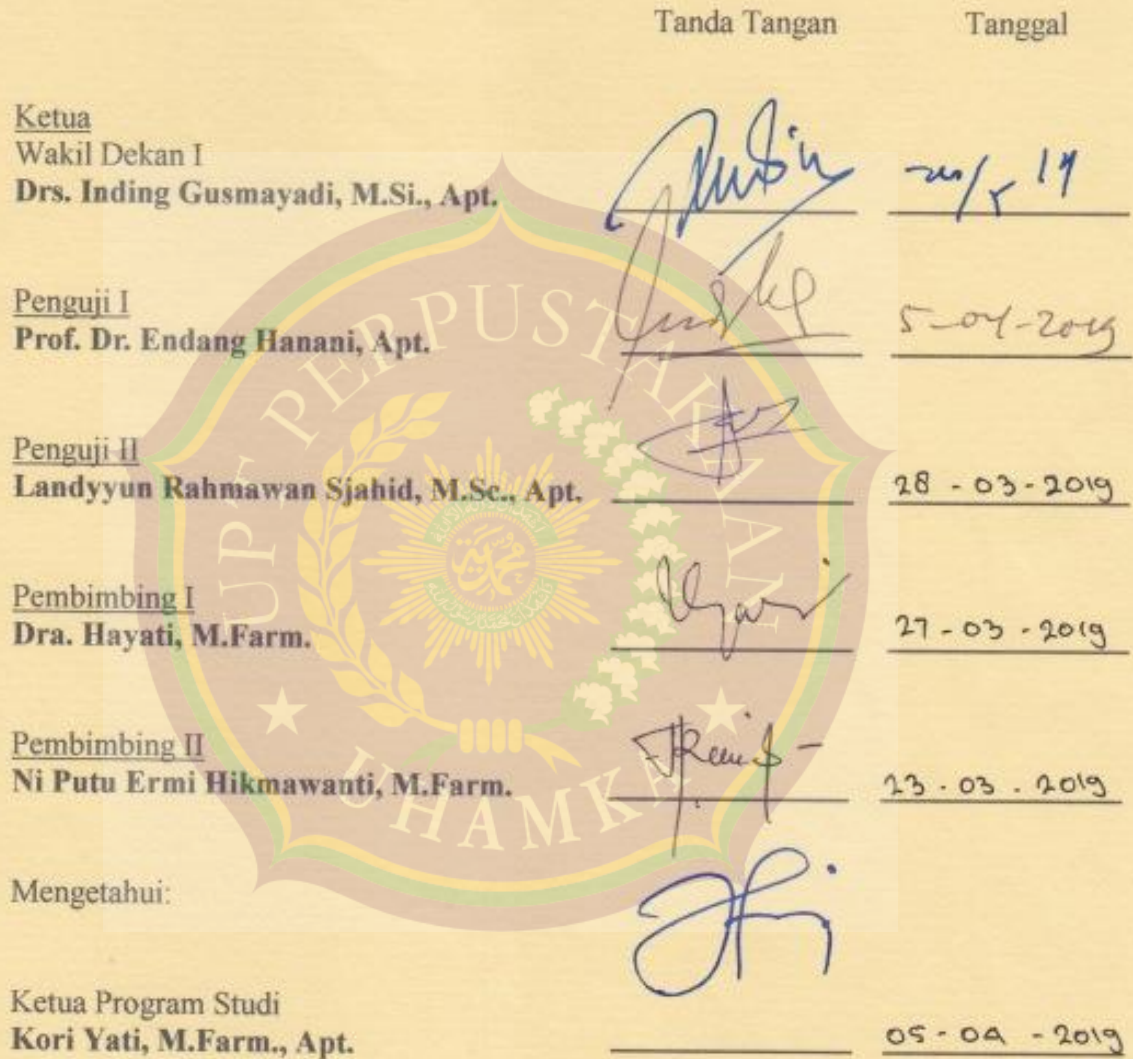 Tanda Tangan Tanggal
Ketua
Wakil Dekan I
Drs. Inding Gusmayadi, M.Si., Apt.
Penguji I
Prof. Dr. Endang Hanani, Apt. 5-04-2019
Penguji II
Landyyun Rahmawan Sjahid, M.Sc., Apt. 28 - 03 - 2019
Pembimbing I
Dra. Hayati, M.Farm. 27 - 03 - 2019
Pembimbing II
Ni Putu Ermi Hikmawanti, M.Farm. 23 - 03 . 2019
Mengetahui:
Ketua Program Studi
Kori Yati, M.Farm., Apt. 05 - 04 - 2019
UPT PERPUSTAKAAN
UHAMKA